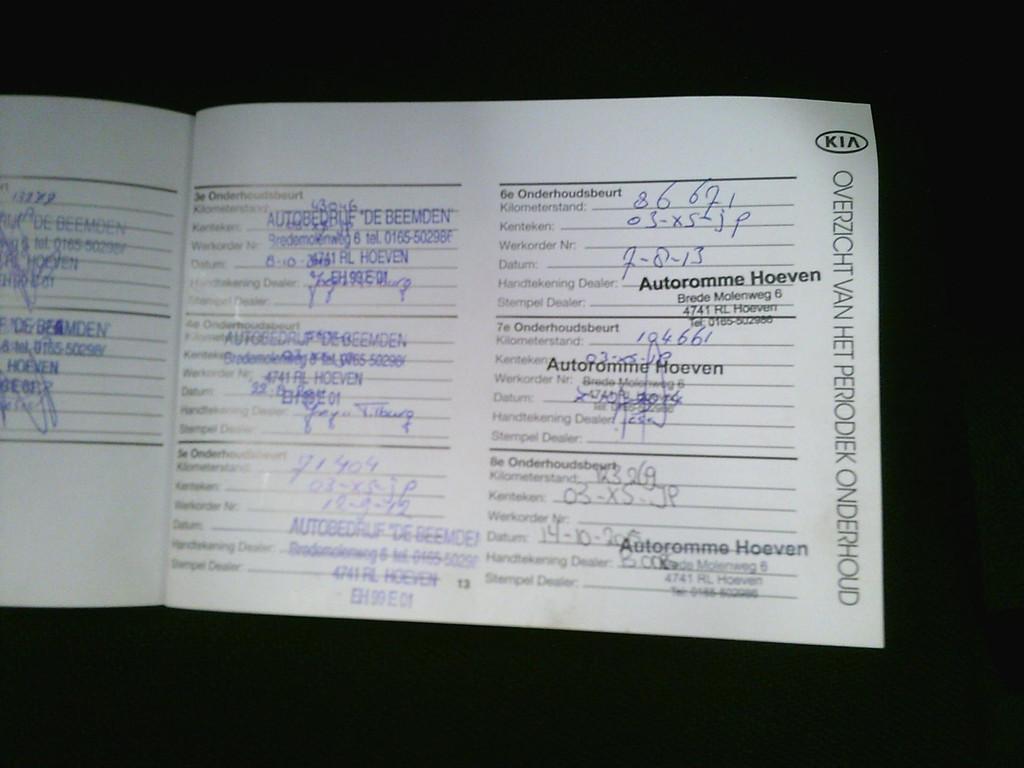 13279
"DE BEEMDEN"
6 tel. 0165-502986
HOEVEN
"DE BEEMDEN"
6 tel. 0165-502986
HOEVEN
3e Onderhoudsbeurt
Kilometerstand: 43046
AUTOBEDRIJF "DE BEEMDEN"
Kenteken:
Werkorder Nr:
Bredemolenweg 6 tel. 0165-502986
Datum: 8-10-
4741 RL HOEVEN
EH 99 E 01
Handtekening Dealer:
Stempel Dealer:
4e Onderhoudsbeurt
Kilometerstand:
AUTOBEDRIJF "DE BEEMDEN"
Kenteken:
Bredemolenweg 6 tel. 0165-502986
Werkorder Nr:
4741 RL HOEVEN
Datum:
EH 99 E 01
Handtekening Dealer:
Stempel Dealer:
5e Onderhoudsbeurt
Kilometerstand: 71404
Kenteken: 03-XS-JP
Werkorder Nr: 12-9-12
Datum:
AUTOBEDRIJF "DE BEEMDEN"
Handtekening Dealer:
Bredemolenweg 6 tel. 0165-502986
Stempel Dealer:
4741 RL HOEVEN
EH 99 E 01
13
6e Onderhoudsbeurt
Kilometerstand: 86 671
Kenteken: 03-XS-JP
Werkorder Nr:
Datum: 7-8-13
Handtekening Dealer:
Autoromme Hoeven
Brede Molenweg 6
Stempel Dealer:
4741 RL Hoeven
Tel: 0165-502986
7e Onderhoudsbeurt
Kilometerstand: 104661
Kenteken: 03-XS-JP
Autoromme Hoeven
Werkorder Nr:
Brede Molenweg 6
Datum:
4741 RL Hoeven
Tel: 0165-502986
Handtekening Dealer:
Stempel Dealer:
8e Onderhoudsbeurt
Kilometerstand: 123269
Kenteken: 03-XS-JP
Werkorder Nr:
Datum: 14-10-
Autoromme Hoeven
Handtekening Dealer:
Brede Molenweg 6
4741 RL Hoeven
Stempel Dealer:
Tel: 0165-502986
KIA
OVERZICHT VAN HET PERIODIEK ONDERHOUD